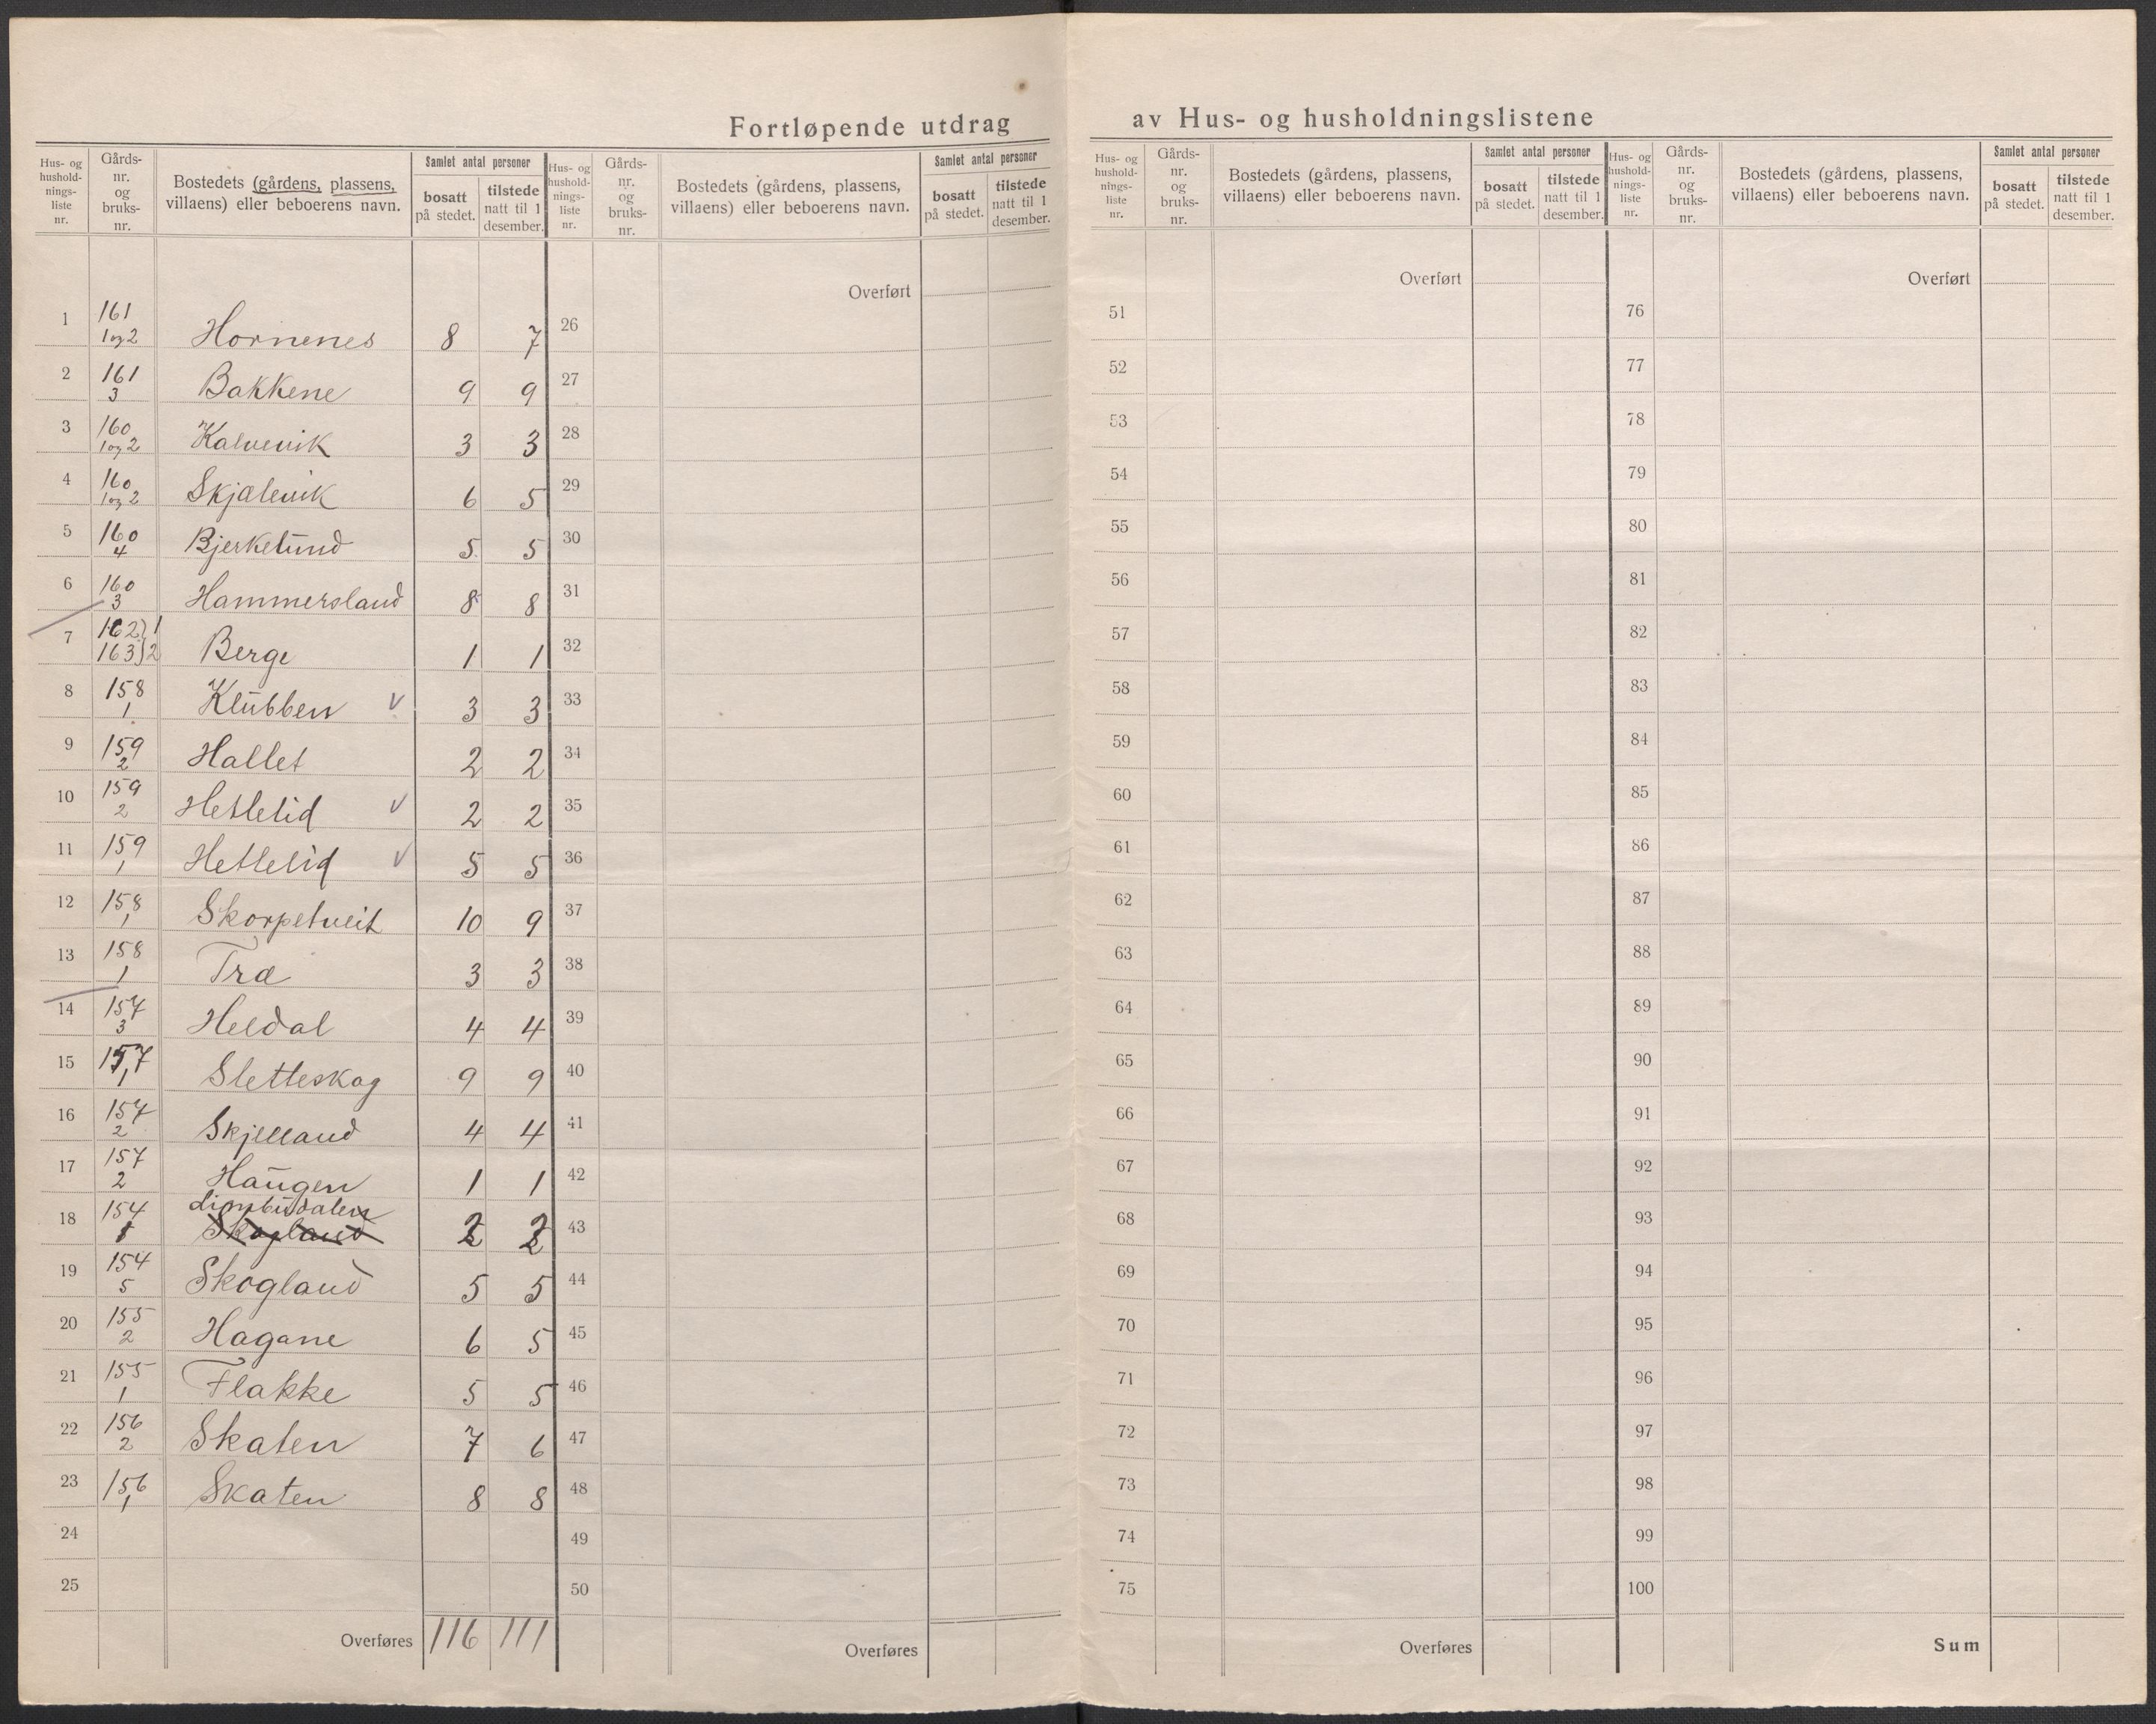 Fortløpende utdrag av Hus- og husholdningslistene
Hus- og hushold- nings- liste nr.
Gårds- nr. og bruks- nr.
Bostedets (gårdens, plassens, villaens) eller beboerens navn.
Samlet antal personer
bosatt på stedet.
tilstede natt til 1 desember.
Hus- og hushold- nings- liste nr.
Gårds- nr. og bruks- nr.
Bostedets (gårdens, plassens, villaens) eller beboerens navn.
Samlet antal personer
bosatt på stedet.
tilstede natt til 1 desember.
Hus- og hushold- nings- liste nr.
Gårds- nr. og bruks- nr.
Bostedets (gårdens, plassens, villaens) eller beboerens navn.
Samlet antal personer
bosatt på stedet.
tilstede natt til 1 desember.
Hus- og hushold- nings- liste nr.
Gårds- nr. og bruks- nr.
Bostedets (gårdens, plassens, villaens) eller beboerens navn.
Samlet antal personer
bosatt på stedet.
tilstede natt til 1 desember.
1 161 1 og 2 Hornenes 8 7
2 161 3 Bakkene 9 9
3 160 1 og 2 Kalvevik 3 3
4 160 1 og 2 Skjælevik 6 5
5 160 4 Bjerkelund 5 5
6 160 3 Hammersland 8 8
7 162)1 163)2 Berge 1 1
8 158 1 Klubben v 3 3
9 159 2 Hallet 2 2
10 159 2 Hetlelid v 2 2
11 159 1 Hetlelid v 5 5
12 158 1 Skorpetveit 10 9
13 158 1 Træ 3 3
14 157 3 Heldal 4 4
15 157 1 Sletteskog 9 9
16 157 2 Skjelland 4 4
17 157 2 Haugen 1 1
18 154 Skogland 2 2
19 154 5 Skogland 5 5
20 155 2 Hagane 6 5
21 155 1 Flakke 5 5
22 156 2 Skaten 7 6
23 156 1 Skaten 8 8
24
25
Overføres 116 111
Overført
26
27
28
29
30
31
32
33
34
35
36
37
38
39
40
41
42
43
44
45
46
47
48
49
50
Overføres
Overført
51
52
53
54
55
56
57
58
59
60
61
62
63
64
65
66
67
68
69
70
71
72
73
74
75
Overføres
Overført
76
77
78
79
80
81
82
83
84
85
86
87
88
89
90
91
92
93
94
95
96
97
98
99
100
Sum